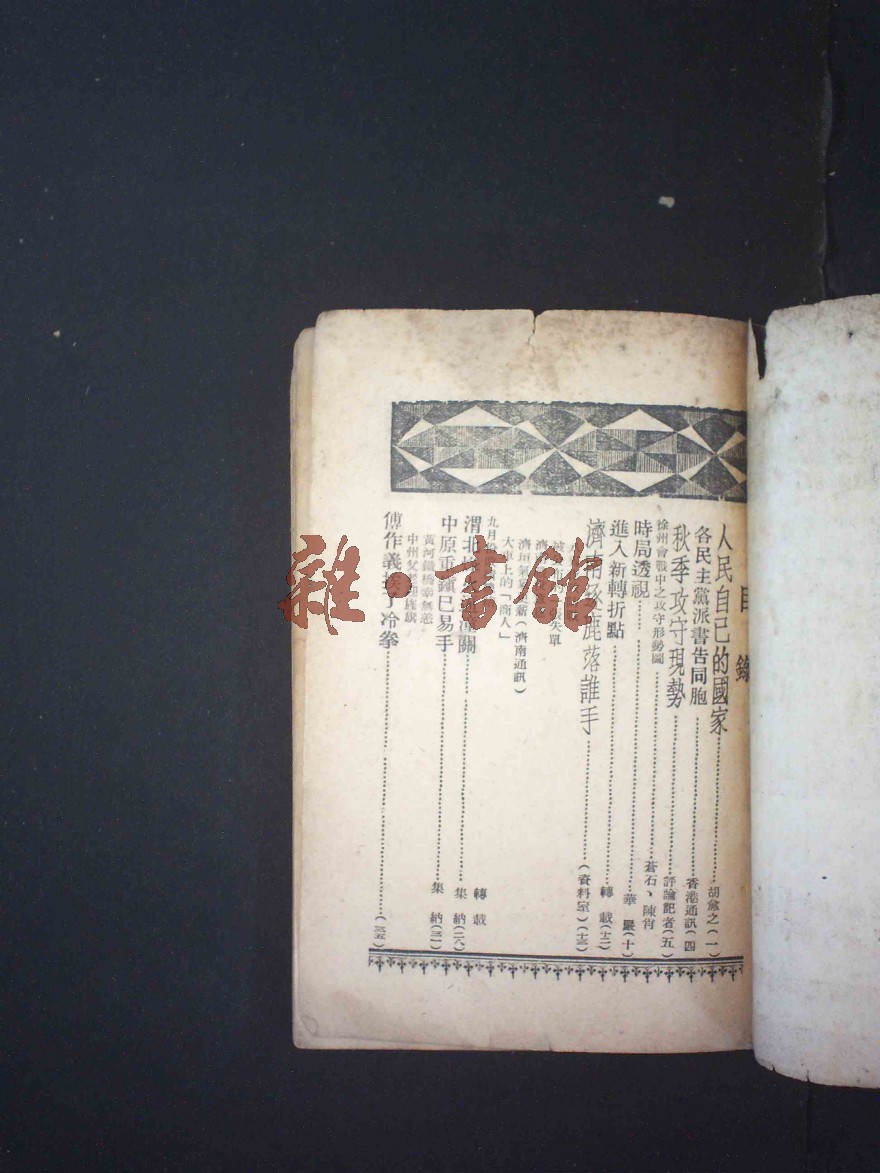 目錄
人民自己的國家……胡愈之(一)
各民主黨派書告同胞……香港通訊(四
秋季攻守現勢……評論記者(五)
徐州會戰中之攻守形勢圖……蒼石、陳肖
時局透視……華嚴(十)
進入新轉折點……轉載(十二)
濟南逐鹿落誰手……(資料室)(十三)
失單
濟南(濟南通訊)
大車上的「商人」
九月……轉載
渭北……潼關……集納(二八)
中原重鎮已易手……集納(三一)
黃河鐵橋幸無恙
中州父
傅作義挨了冷拳……(三五)
雜·書館